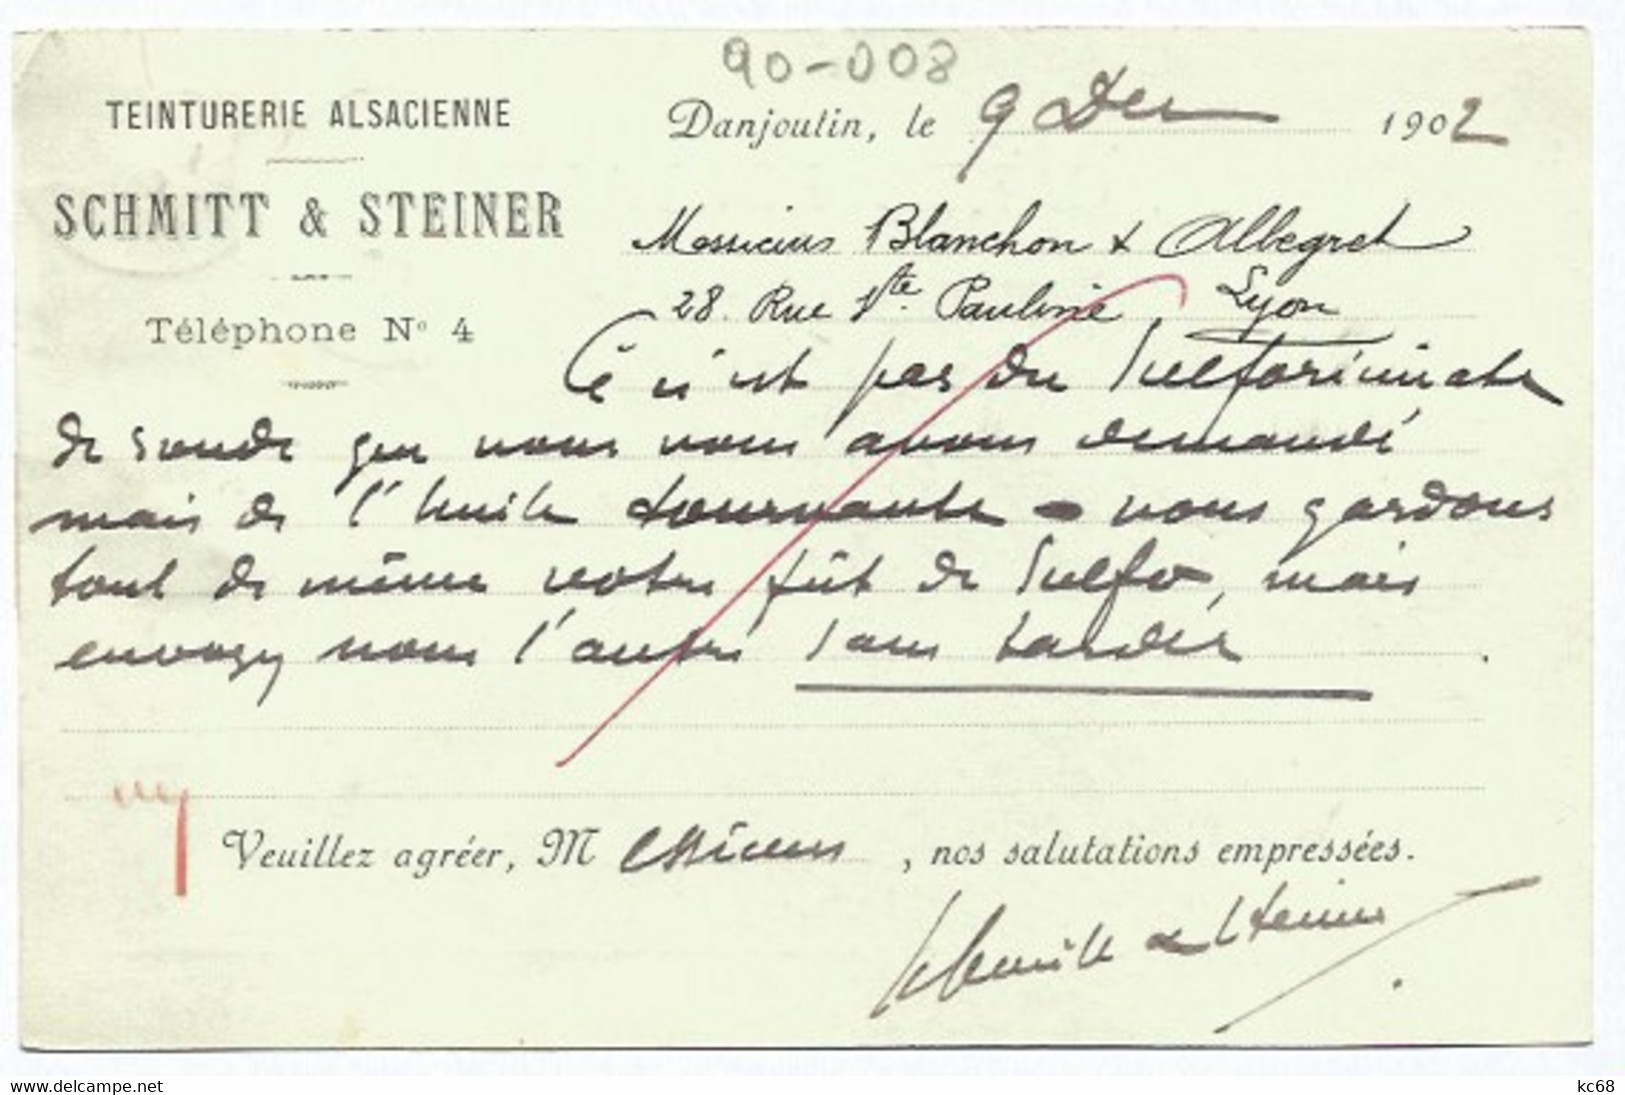 90-008
TEINTURERIE ALSACIENNE
SCHMITT & STEINER
Téléphone No 4
Danjoutin, le 9 Dec 1902
Messieurs Blanchon & Allegret
28. Rue Vte. Pauline, Lyon
Ce n'est pas du Sulforicinate
de soude que nous vous avons demandé
mais de l'huile tournante - nous gardons
tout de même votre fût de Sulfo, mais
envoyez nous l'autre sans tarder.
Veuillez agréer, Messieurs, nos salutations empressées.
Schmitt & Steiner
www.delcampe.net
kc68